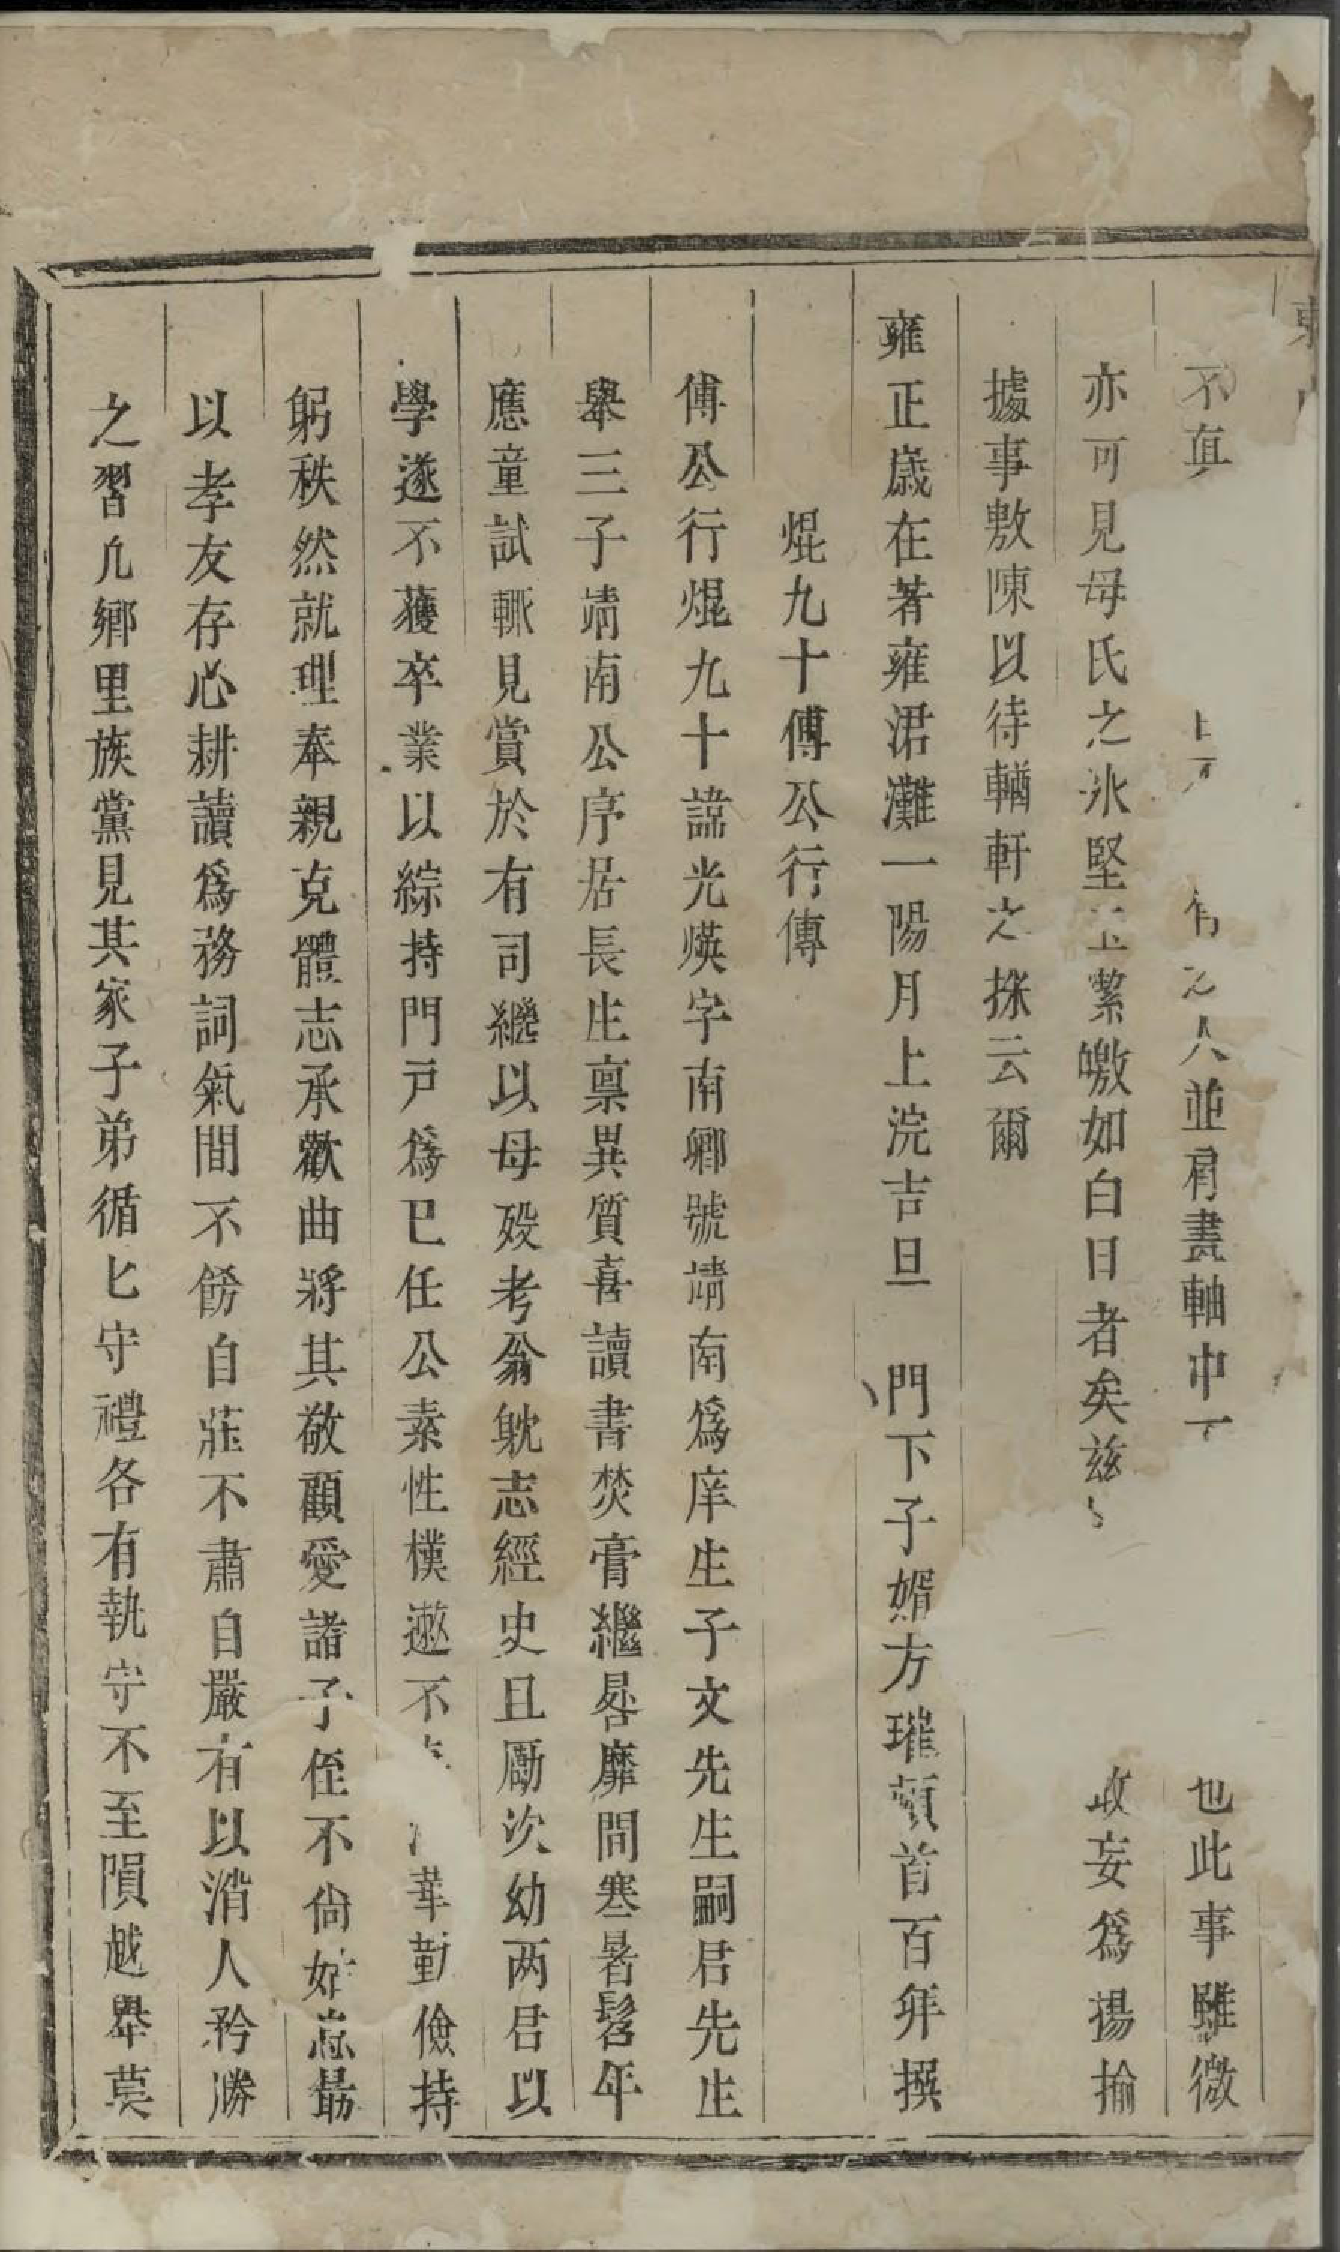 不真之人並肩畫軸中也此事雖微
亦可見母氏之冰堅玉潔皦如白日者矣茲妄爲揚揄
據事敷陳以待輶軒之採云爾
雍正歲在著雍涒灘一陽月上浣吉旦　門下子婿方璀頓首百拜撰
焜九十傅公行傳
傅公行焜九十諱光煐字南鄉號靖南爲庠生子文先生嗣君先生
舉三子靖南公序居長生禀異質喜讀書焚膏繼晷靡間寒暑髫年
應童試輒見賞於有司繼以母殁考翁躭志經史且勵次幼两君以
學遂不獲卒業以綜持門戸爲已任公素性樸遬不華勤儉持
躬秩然就理奉親克體志承歡曲將其敬顧愛諸子侄不尙姑息最
以孝友存心耕讀爲務詞氣間不飾自莊不肅自嚴有以消人矜勝
之習凢鄉里族黨見其家子弟循匕守禮各有執守不至隕越舉莫